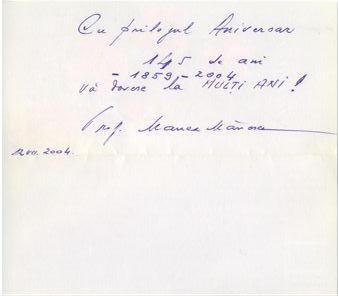 Cu prilejul Aniversar
145 de ani
- 1859 - 2004
Vă doresc la MULȚI ANI!
Prof. Manea Mănescu
12.VII.2004.